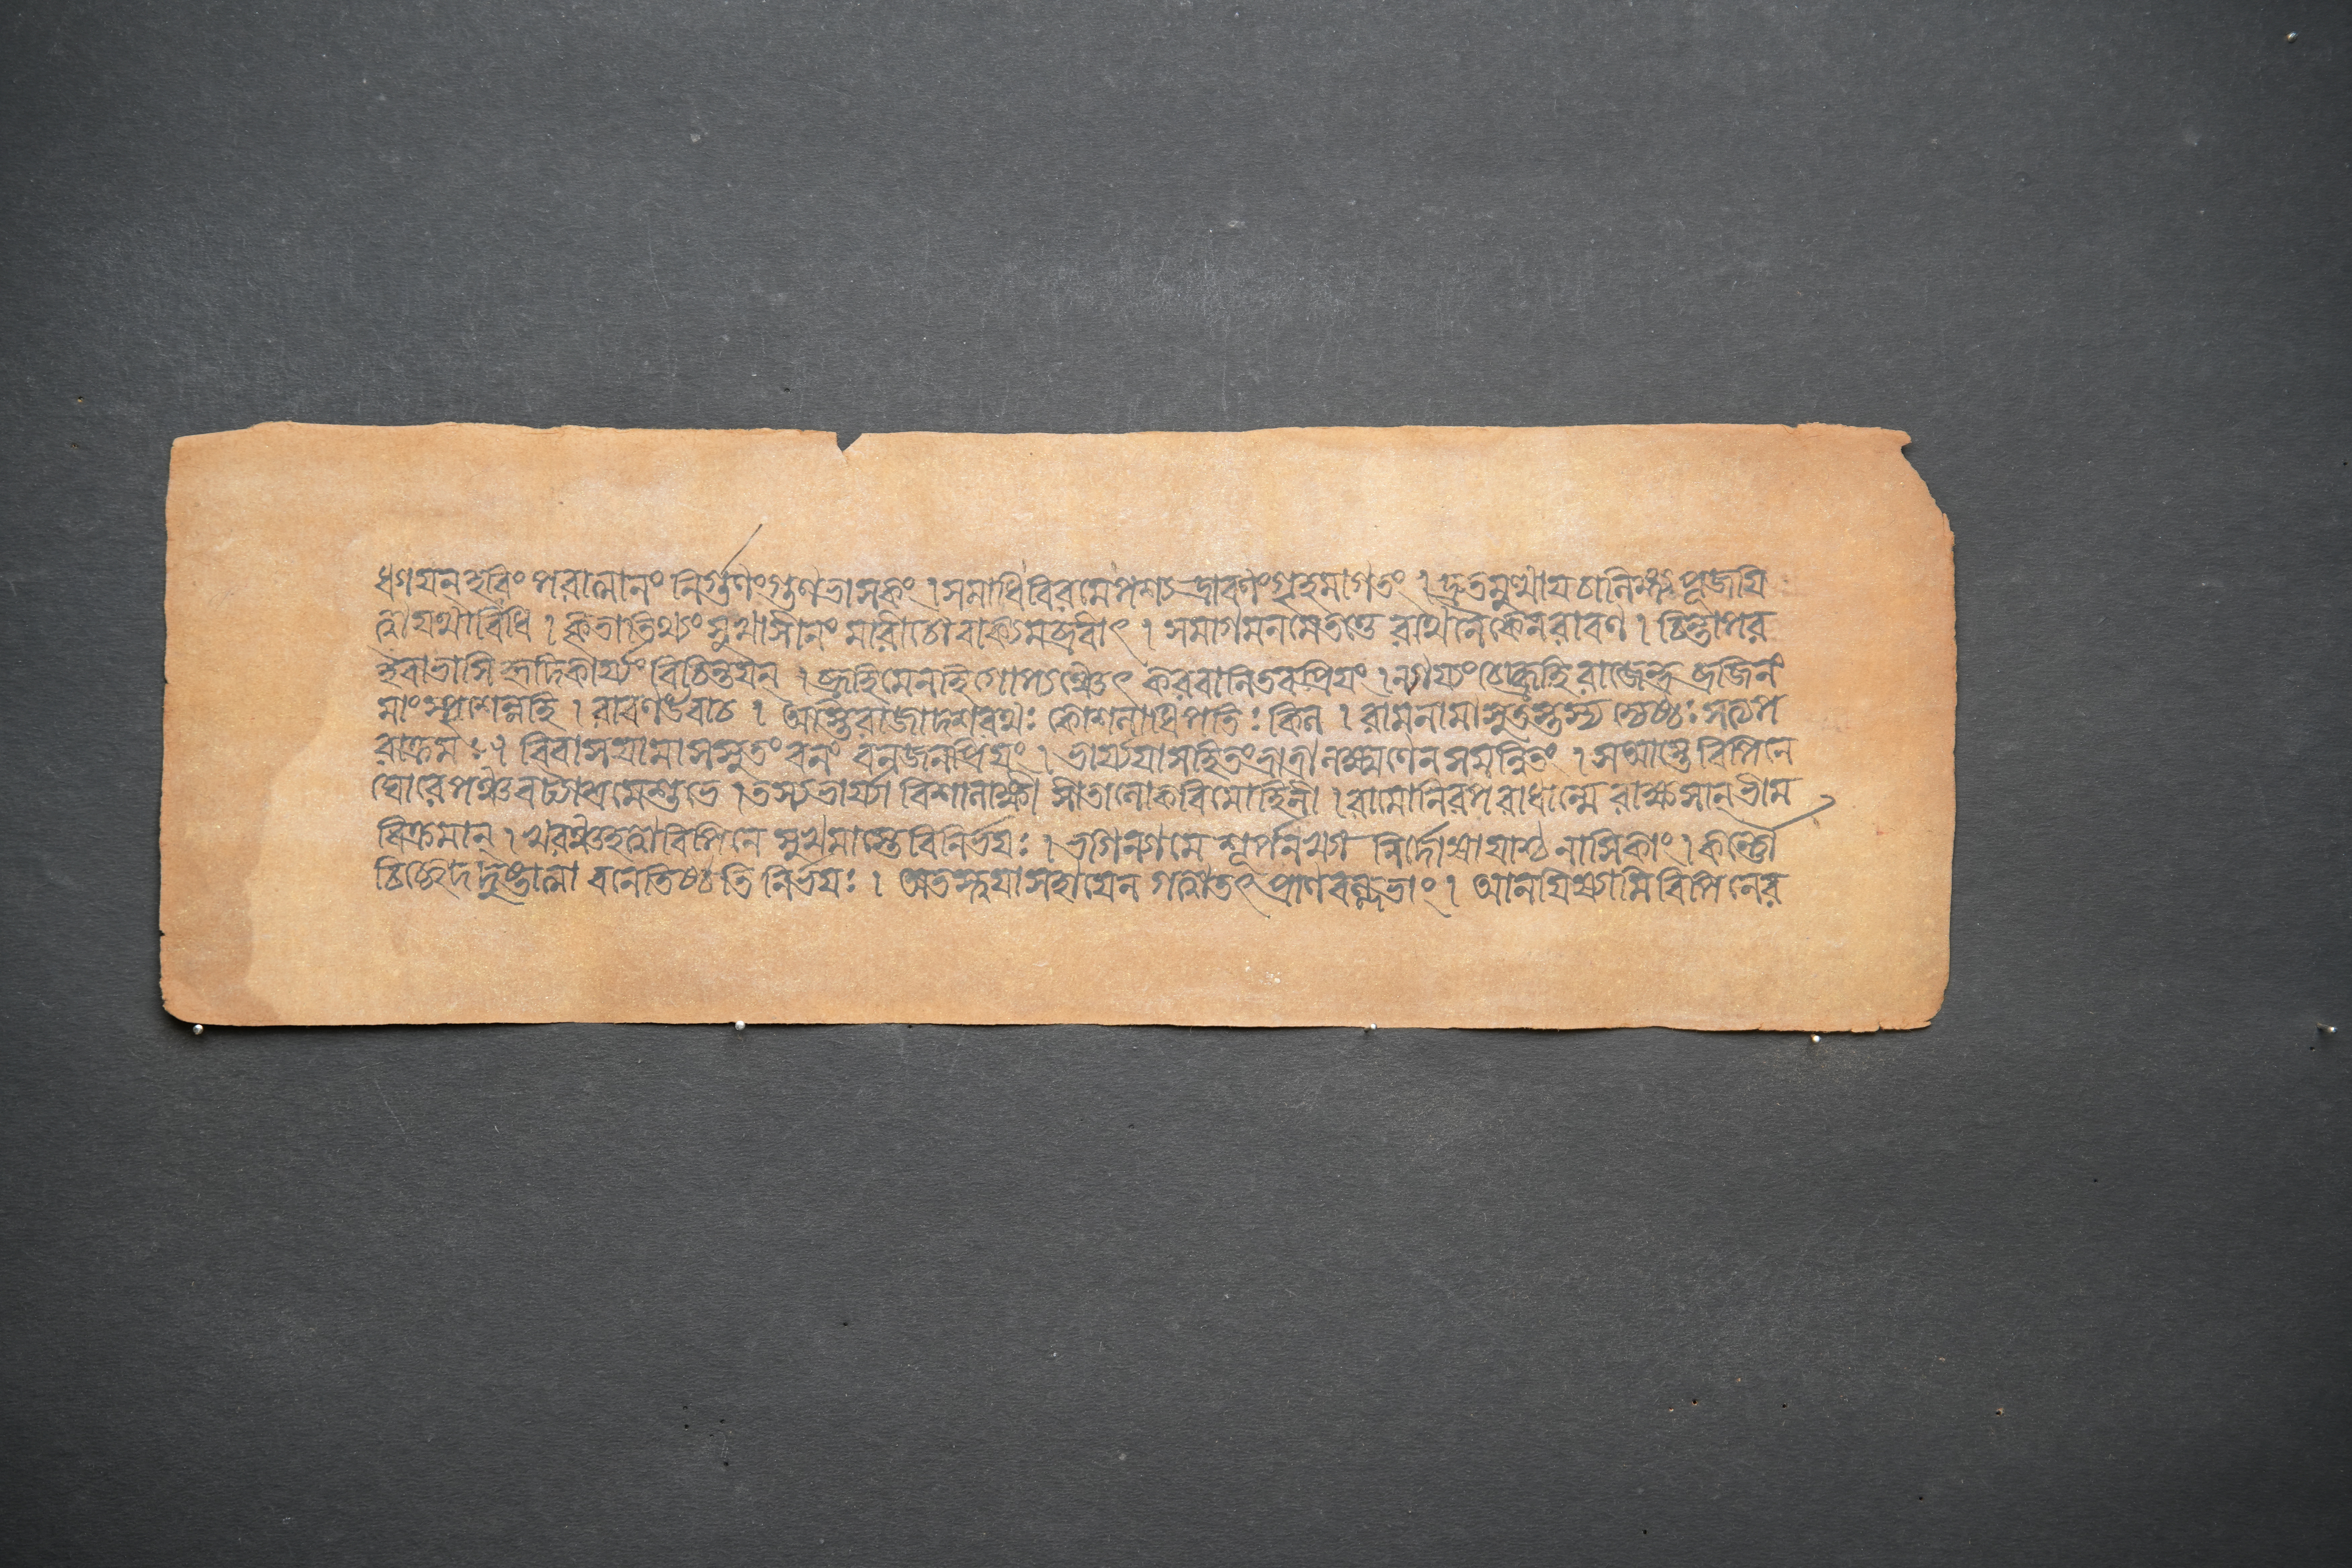 ধ্যায়ন হৃদি পরাত্মানং নির্গুণং গুণভাসকং । সমাধি বিরমে পশ্যদ্রাবণং গৃহমাগতং । দ্রুতমুত্থায চালিঙ্গ্য পূজযি
ত্বা যথাবিধি । কৃতাতিথ্যং সুখাসীনং মারীচো বাক্যমব্রবীৎ । সমাগমনমেতত্তে রথেনৈকেন রাবণ । চিন্তাপর
ইবাভাসি হৃদিকার্য্যং বিচিন্তযন । ব্রূহিমেনহি গোপ্যঞ্চেৎ করবানিতবপ্রিযং । ন্যায্যংচেদ্ব্রূহি রাজেন্দ্র বৃজিনং
মাং স্পৃশেন্নহি । রাবণ উবাচ । অস্তিরাজা দশরথঃ কোশলাধিপতিঃ কিল । রামনামা সুতস্তস্য জ্যেষ্ঠঃ সত্যপ
রাক্রমঃ । বিবাসযামাসসুতং বনং বনজনপ্রিযং । ভার্য্যযাসহিতংভ্রাত্রা লক্ষ্মণেন সমন্বিতং । সআস্তে বিপিনে
ঘোরে পঞ্চবট্যাশ্রমেশুভে । তস্যভার্য্যা বিশালাক্ষী সীতালোকবিমোহিনী । রামোনিরপরাধান্মে রাক্ষসানভীম
বিক্রমান । খরঞ্চহত্বাবিপিনে সুখমাস্তেবিনির্ভযঃ । ভগিন্যামে শূর্পনখ্যা নির্দোষাযাশ্চ নাসিকাং । কর্ণৌ
চিচ্ছেদ দুষ্টাত্মা বনেতিষ্ঠতি নির্ভযঃ । অতস্ত্বযাসহাযেন গত্বাতৎ প্রাণবল্লভাং । আনযিষ্যামি বিপিনের